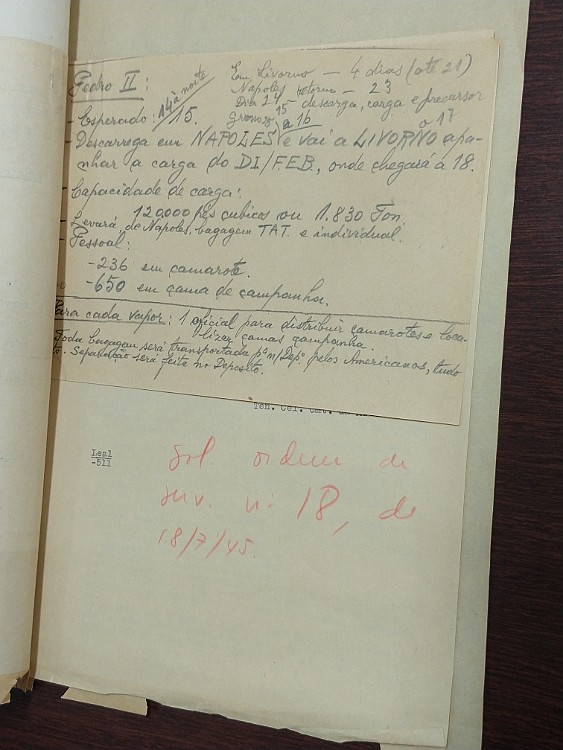 Pedro II:
Em Livorno - 4 dias (até 21)
Napoles retorno - 23
Dia 24
15 - descarga, carga e precursor
a 16 a 17
- Esperado: 14 à noite
15.
Descarrega em NAPOLES e vai a LIVORNO apa-
nhar a carga do DI/F.E.B., onde chegará a 18.
Capacidade de carga:
120.000 pés cubicos ou 1.830 Ton.
Levará, de Napoles, bagagem TAT. e individual.
Pessoal:
-236 em camarote.
-650 em cama de campanha.
Para cada vapor: 1 oficial para distribuir camarotes e loca-
lizer camas campanha.
Toda bagagem será transportada pª m/Depº pelos Americanos, tudo
Separação será feita no Deposito.
Ten. Cel.
Leal
-511
Sol. ordem de
serv. nº 18, de
18/7/45.